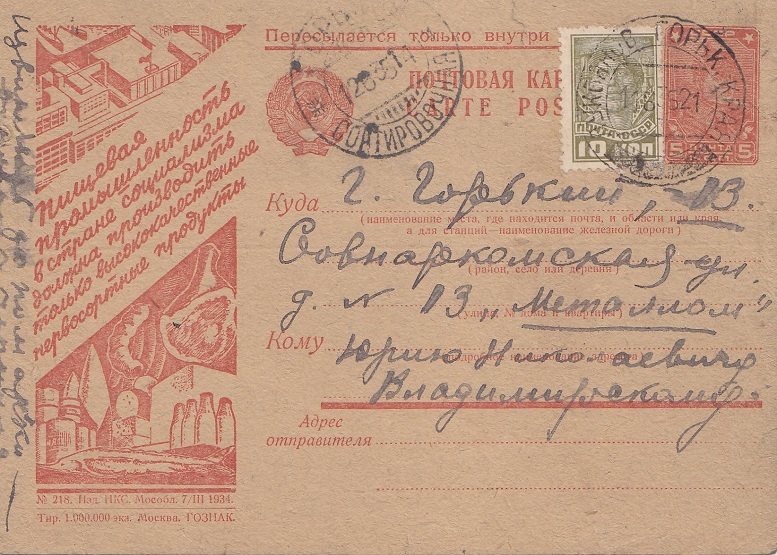 Пересылается только внутри
ПОЧТОВАЯ КАР
CARTE POS
СОРТИРОВОЧ
12 8 35
ГОРЬК. КРАЯ
10 КОП
ПОЧТА СССР
5 ПОЧТА 5
Пищевая
промышленность
в стране социализма
должна производить
только высококачественные
первосортные продукты
Куда г. Горький, 13.
(наименование места, где находится почта, и области или края,
а для станций—наименование железной дороги)
Совнаркомская ул.
(район, село или деревня)
д. № 13 „Металлом"
(улица, № дома и квартиры)
Кому Юрию Николаевичу
(подробное наименование адресата)
Владимирскому.
Адрес
отправителя
№ 218. Изд. НКС. Мособл. 7/III 1934.
Тир. 1.000.000 экз. Москва. ГОЗНАК.